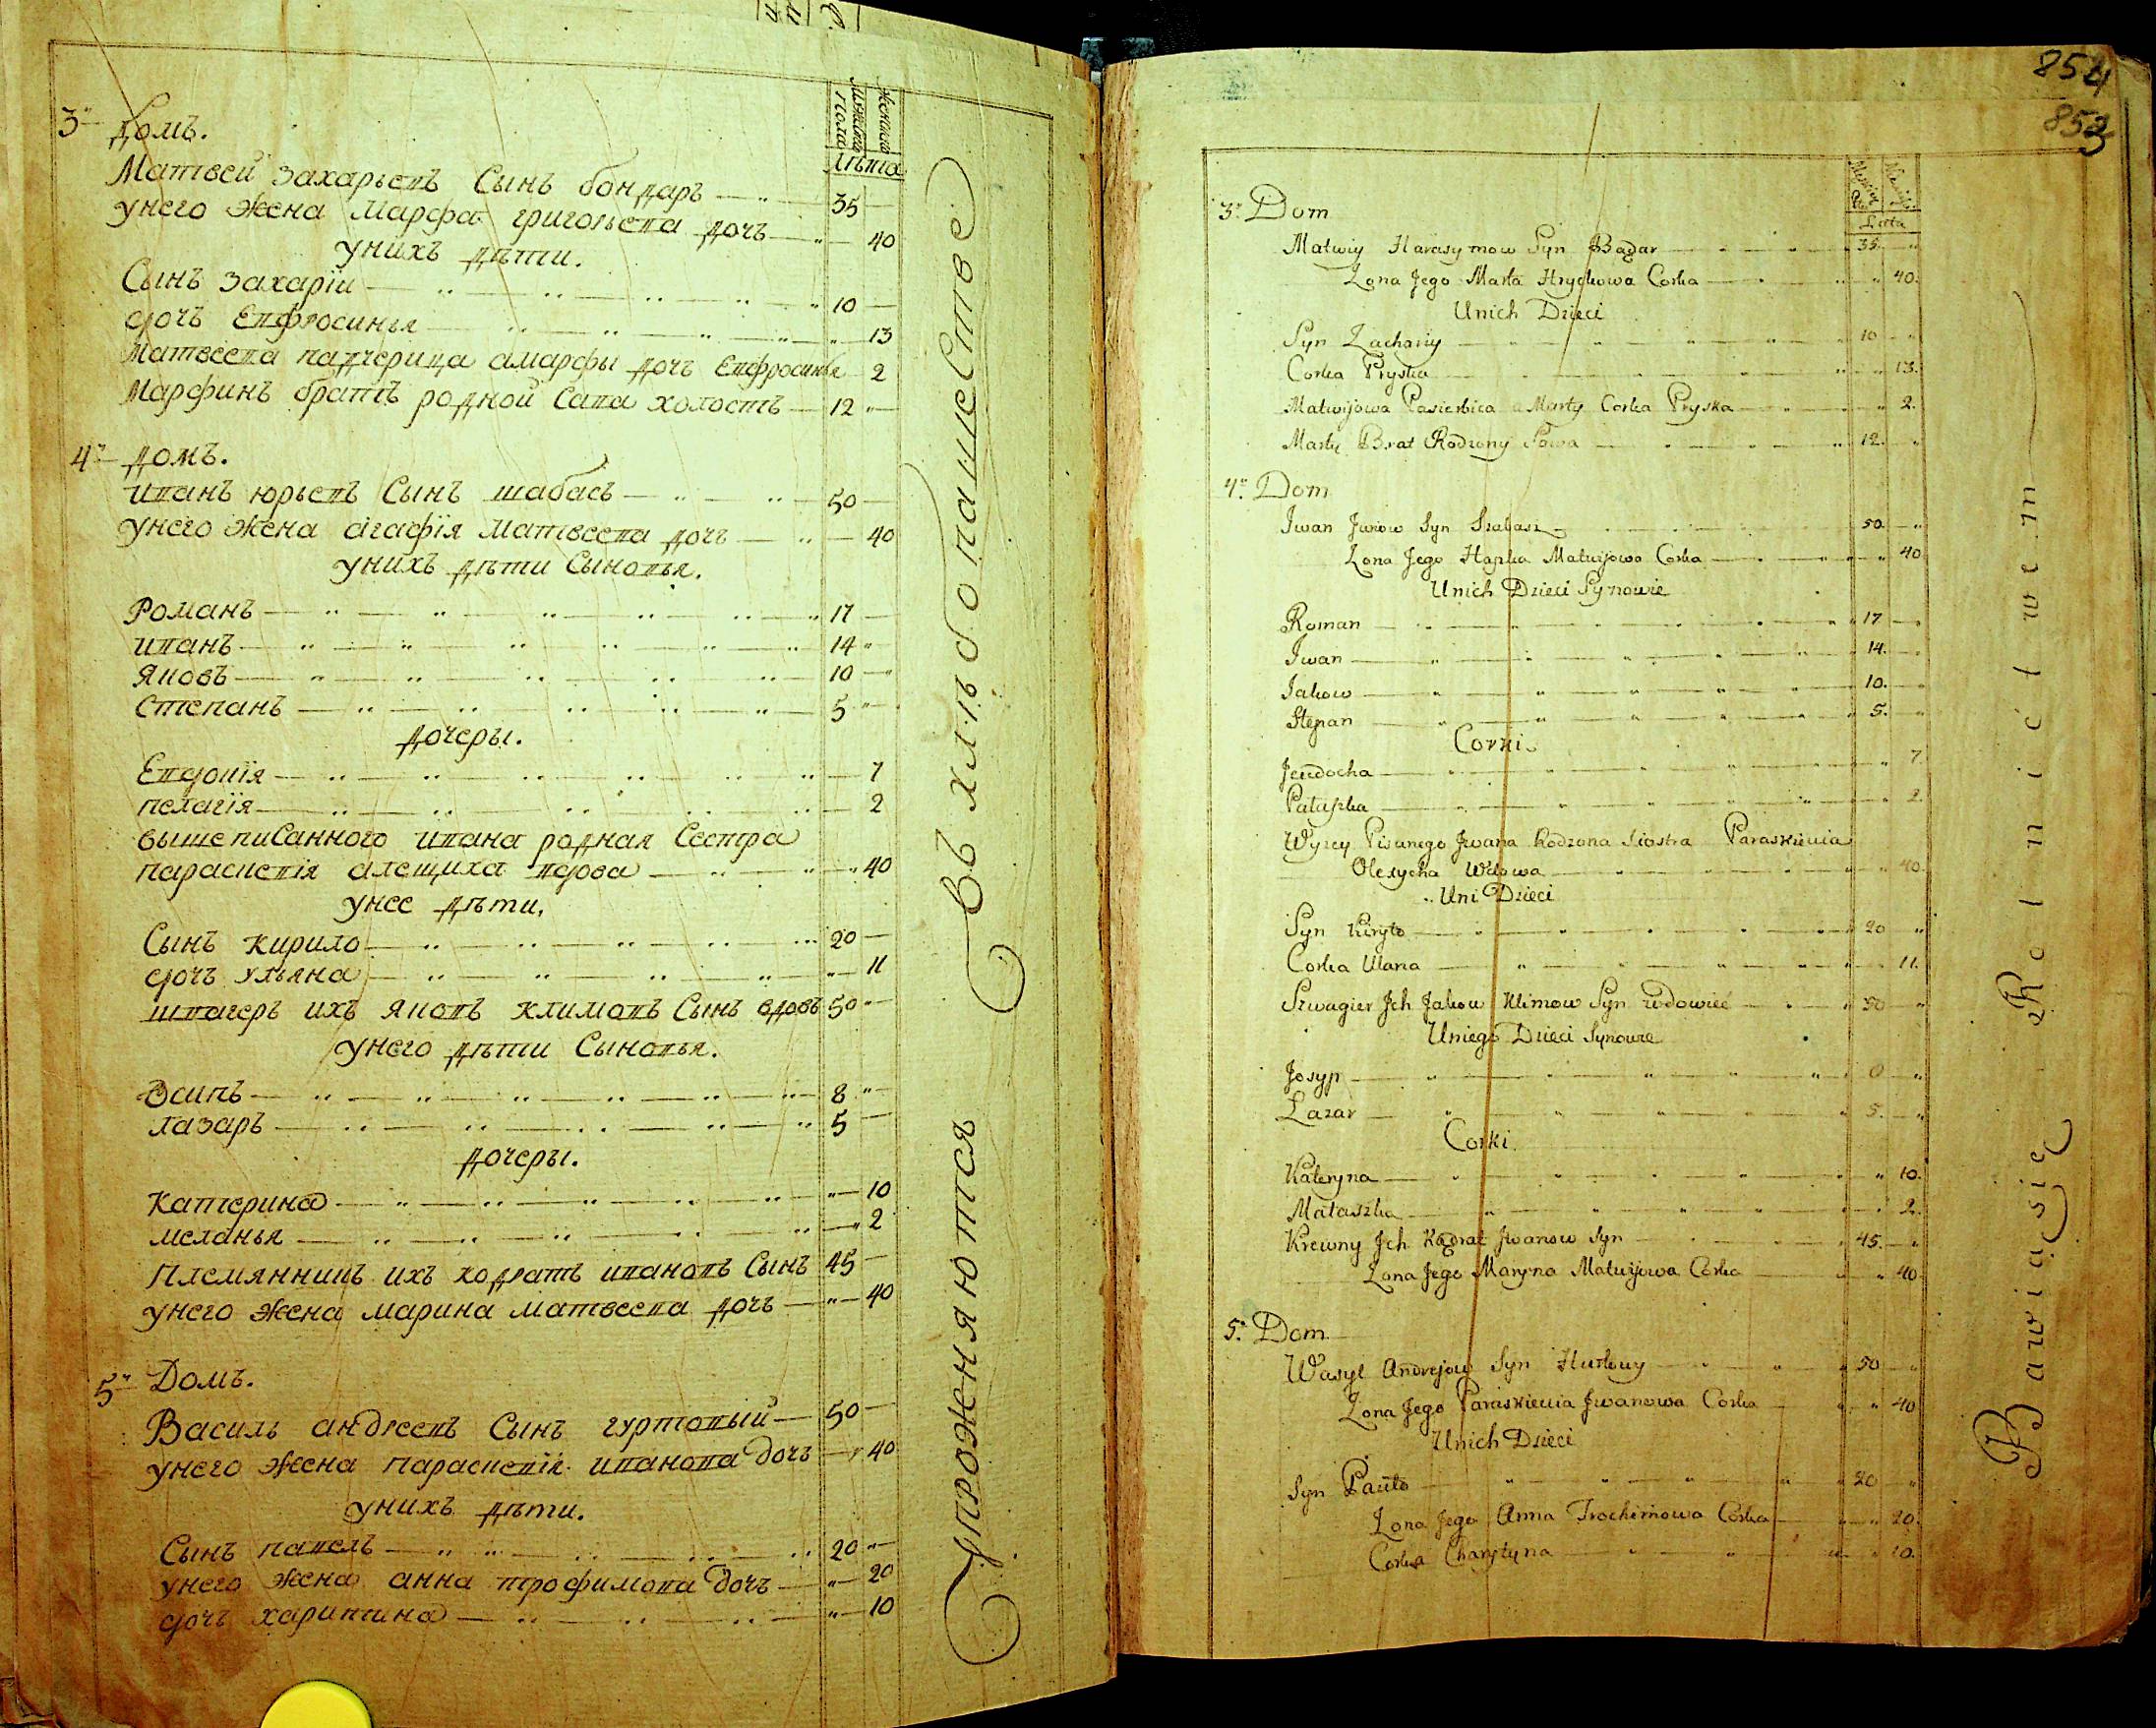 Мужеска пола
Женска
Лѣта
3" домъ.
Матвей захарьевъ Сынъ бондарь 35
унего жена Марфа григорьева дочь 40
унихъ дѣти.
Сынъ захарїи 10
дочъ Евфросинья 13
Матвеева падчерица а марфы дочь Евфросинья 2
Марфинъ братъ родной Сава холостъ 12
4" домъ.
иванъ юрьевъ Сынъ шабасъ 50
унего жена агафїя матвеева дочь 40
унихъ дѣти Сыновья.
Романъ 17
иванъ 14
Яковъ 10
Степанъ 5
дочеры.
Евдокїя 7
пелагїя 2
вышеписанного ивана родная Сестра
параскевїя алещиха вдова 40
унее дѣти.
Сынъ кирило 20
дочъ ульяна 11
швагеръ ихъ яковъ климовъ Сынъ вдовъ 50
унего дѣти Сыновья.
Осипъ 8
лазарь 5
дочеры.
катерина 10
меланья 2
племянникъ ихъ кодратъ ивановъ Сынъ 45
унего жена марина матвеева дочь 40
5" Домъ.
Василь андреевъ Сынъ гуртовый 50
унего жена параскевїя иванова дочь 40
унихъ дѣти.
Сынъ павелъ 20
унего жена анна трофимова дочь 20
дочъ харитина 10
Упрожняются въ хлѣбопашестве
854
853
Lata
3" Dom
Matwiy Harasymow Syn Bądar 35.
Zona Jego Marta Hryckowa Corka 40.
Unich Dzieci
Syn Zachariy 10
Corka Pryska 13.
Matwijowa Pasierbica a Marty Corka Pryska 2.
Marty Brat Rodzony Sawa 12.
4" Dom
Jwan Jurow Syn Szabasz 50.
Zona Jego Hapka Matwijowa Corka 40
Unich Dzieci Synowie
Roman 17
Jwan 14.
Jakow 10.
Stepan 5.
Corki.
Jewdocha 7
Palaszka 2.
Wyzey Pisanego Jwana Rodzona Siostra Paraskiewia
Olesycha Wdowa 40
Uni Dzieci
Syn Kiryło 20
Corka Ulana 11.
Szwagier Jch Jakow Klimow Syn wdowiec 50
Uniego Dzieci Synowie
Josyp
Lazar 5.
Corki.
Kateryna 10.
Małaszka 2.
Krewny Jch Kądrat Jwanow Syn 45.
Zona Jego Maryna Matwijowa Corka 40
5" Dom
Wasyl Andrejow Syn Hurtowy 50
Zona Jego Paraskiewia Jwanowa Corka 40
Unich Dzieci
Syn Pawło 20
Zona Jego Anna Trochimowa Corka 20.
Corka Charytyna 10.
Bawią się Rolnictwem